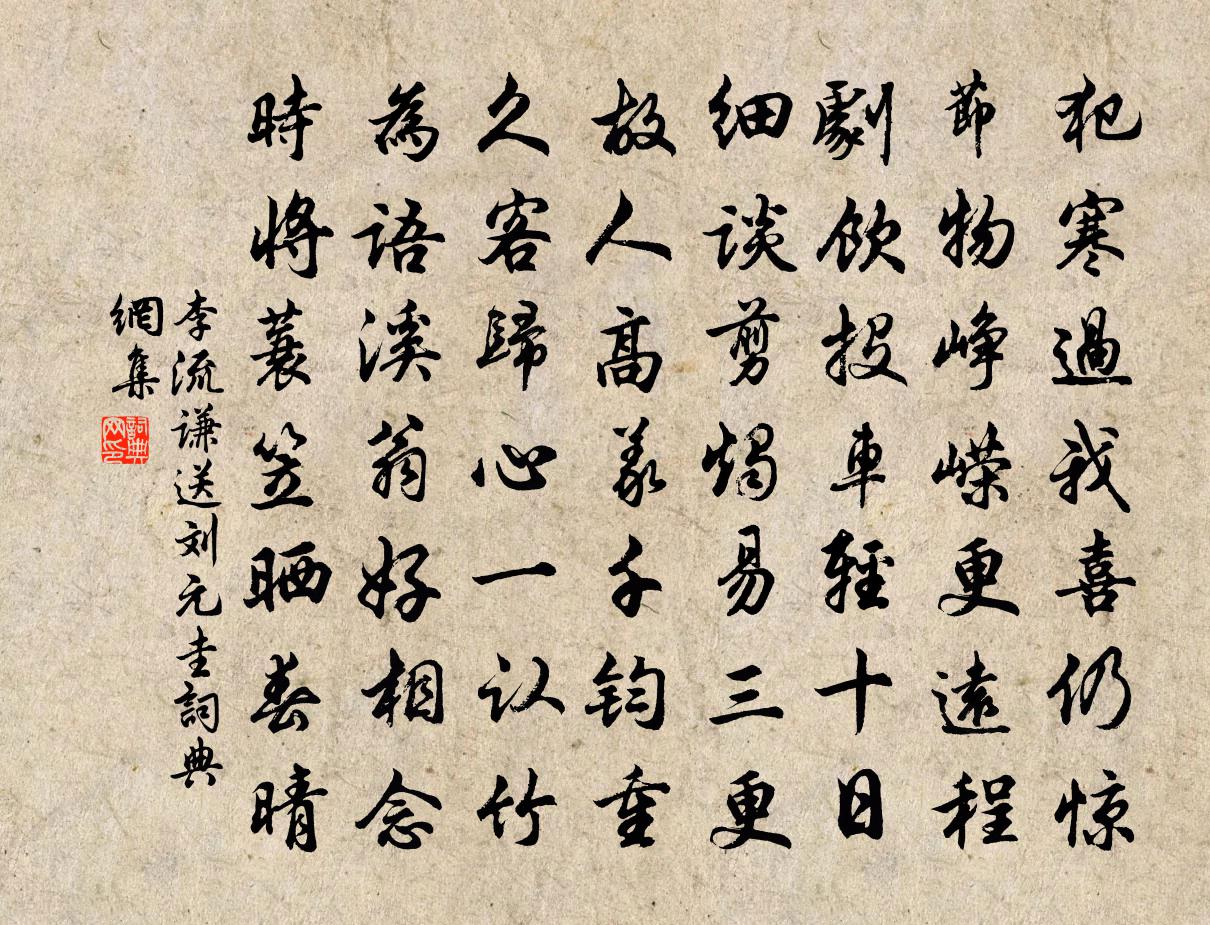 犯寒過我喜仍惊
節物峥嵘更遠程
劇飲投車輕十日
细谈剪燭易三更
故人高義千钧重
久客歸心一认竹
為语溪翁好相念
時將蓑笠晒春晴
李流谦送刘元圭詞典
網集
詞典
网印